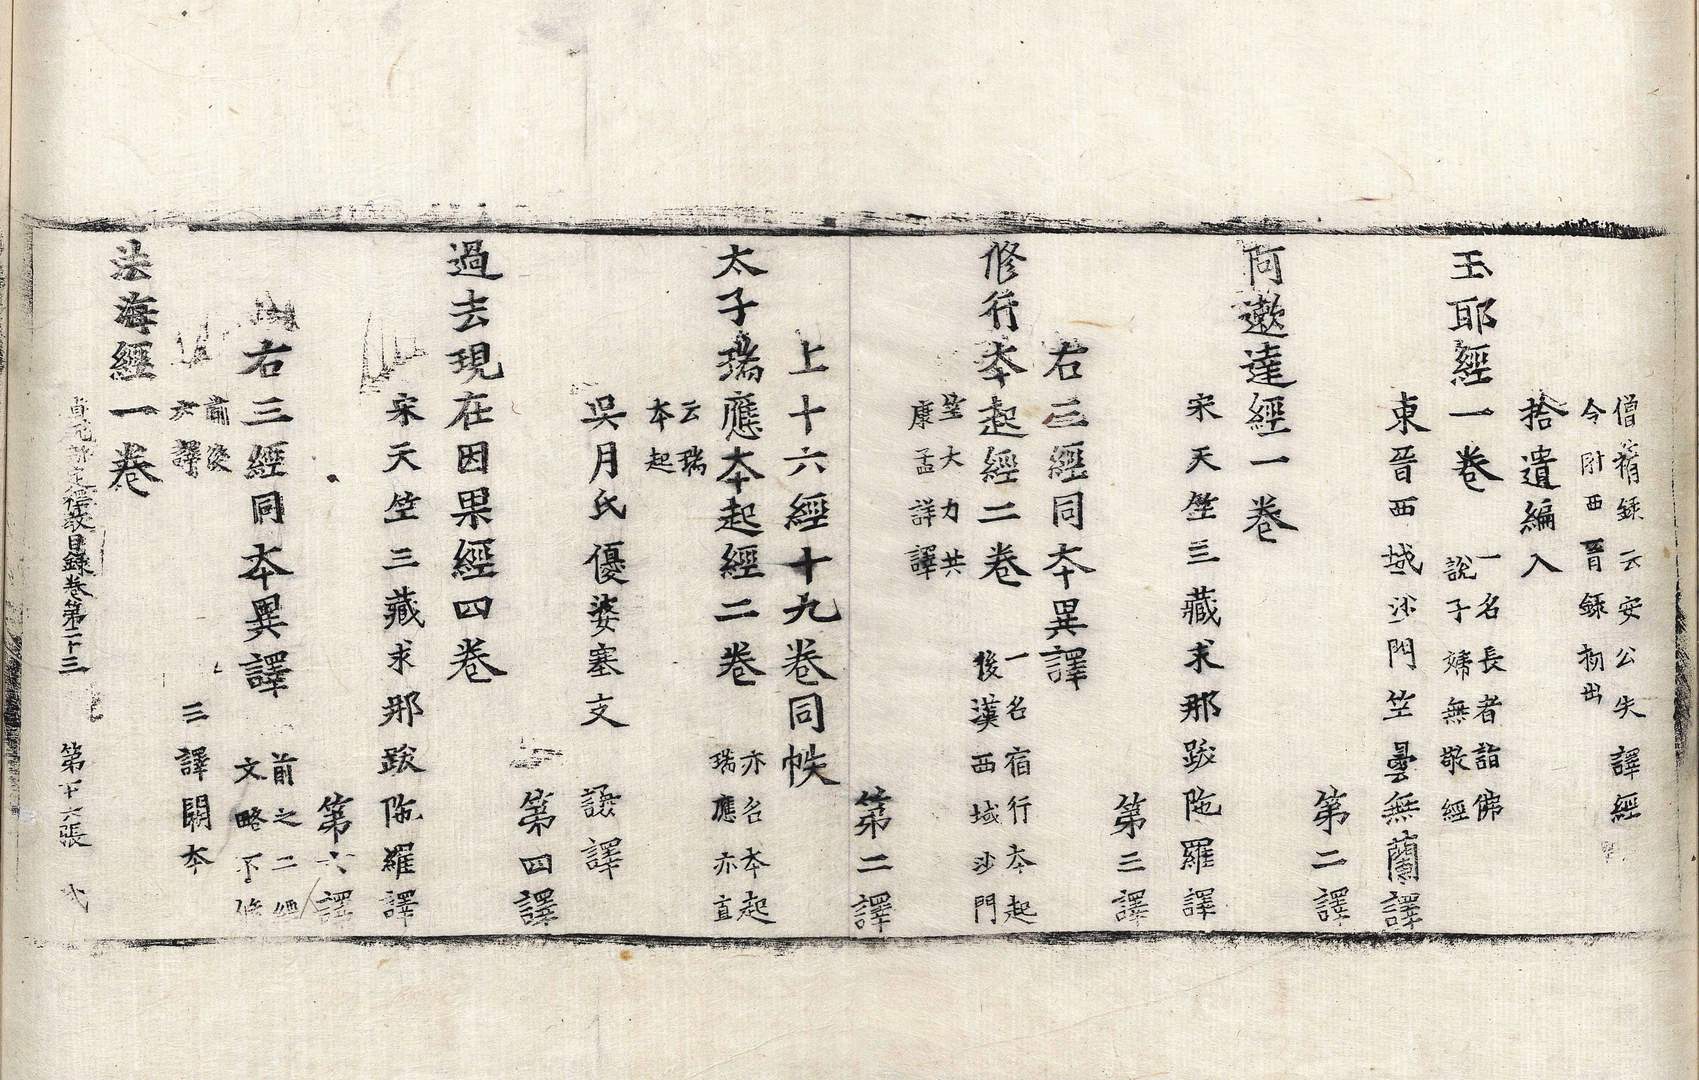 僧祐錄云安公失譯經
今附西晉錄拾出
拾遺編入
玉耶經一卷 一名長者詣佛
說子婦無敬經
東晉西域沙門竺曇無蘭譯
第二譯
阿遬達經一卷
宋天竺三藏求那跋陁羅譯
第三譯
右三經同本異譯
修行本起經二卷 一名宿行本起
後漢西域沙門
竺大力共
康孟詳譯
第二譯
上十六經十九卷同帙
太子瑞應本起經二卷 亦名本起
瑞應亦直
云瑞
本起
吳月氏優婆塞支謙譯
第四譯
過去現在因果經四卷
宋天竺三藏求那跋陁羅譯
第六譯
右三經同本異譯 前之二經
文略不備
前後
六譯
三譯闕本
法海經一卷
貞元新定釋教目錄卷第三十三 第十六張